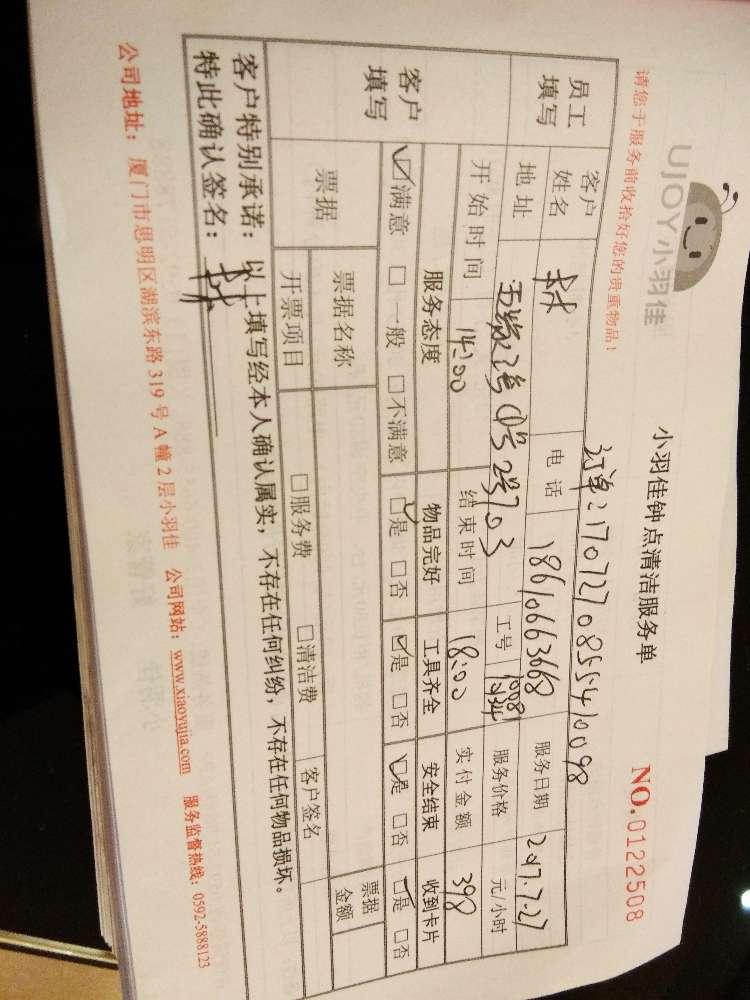 UJOY小羽佳
小羽佳钟点清洁服务单
NO.0122508
请您于服务前收拾好您的贵重物品！
订单:1707270855410098
员工填写
客户姓名
电话 18610663668
服务日期 2017.7.27
地址
2号703
工号
服务价格 元/小时
开始时间 14:00
结束时间 18:00
实付金额 398
客户填写
服务态度 物品完好 工具齐全 安全结束 收到卡片
☑满意 □一般 □不满意 ☑是 □否 ☑是 □否 ☑是 □否 ☑是 □否
票据
票据名称
票据金额
开票项目 □服务费 □清洁费 客户签名
客户特别承诺：以上填写经本人确认属实，不存在任何纠纷，不存在任何物品损坏。
特此确认签名：
公司地址：厦门市思明区湖滨东路319号A幢2层小羽佳 公司网站：www.xiaoyujia.com 服务监督热线：0592-5888123